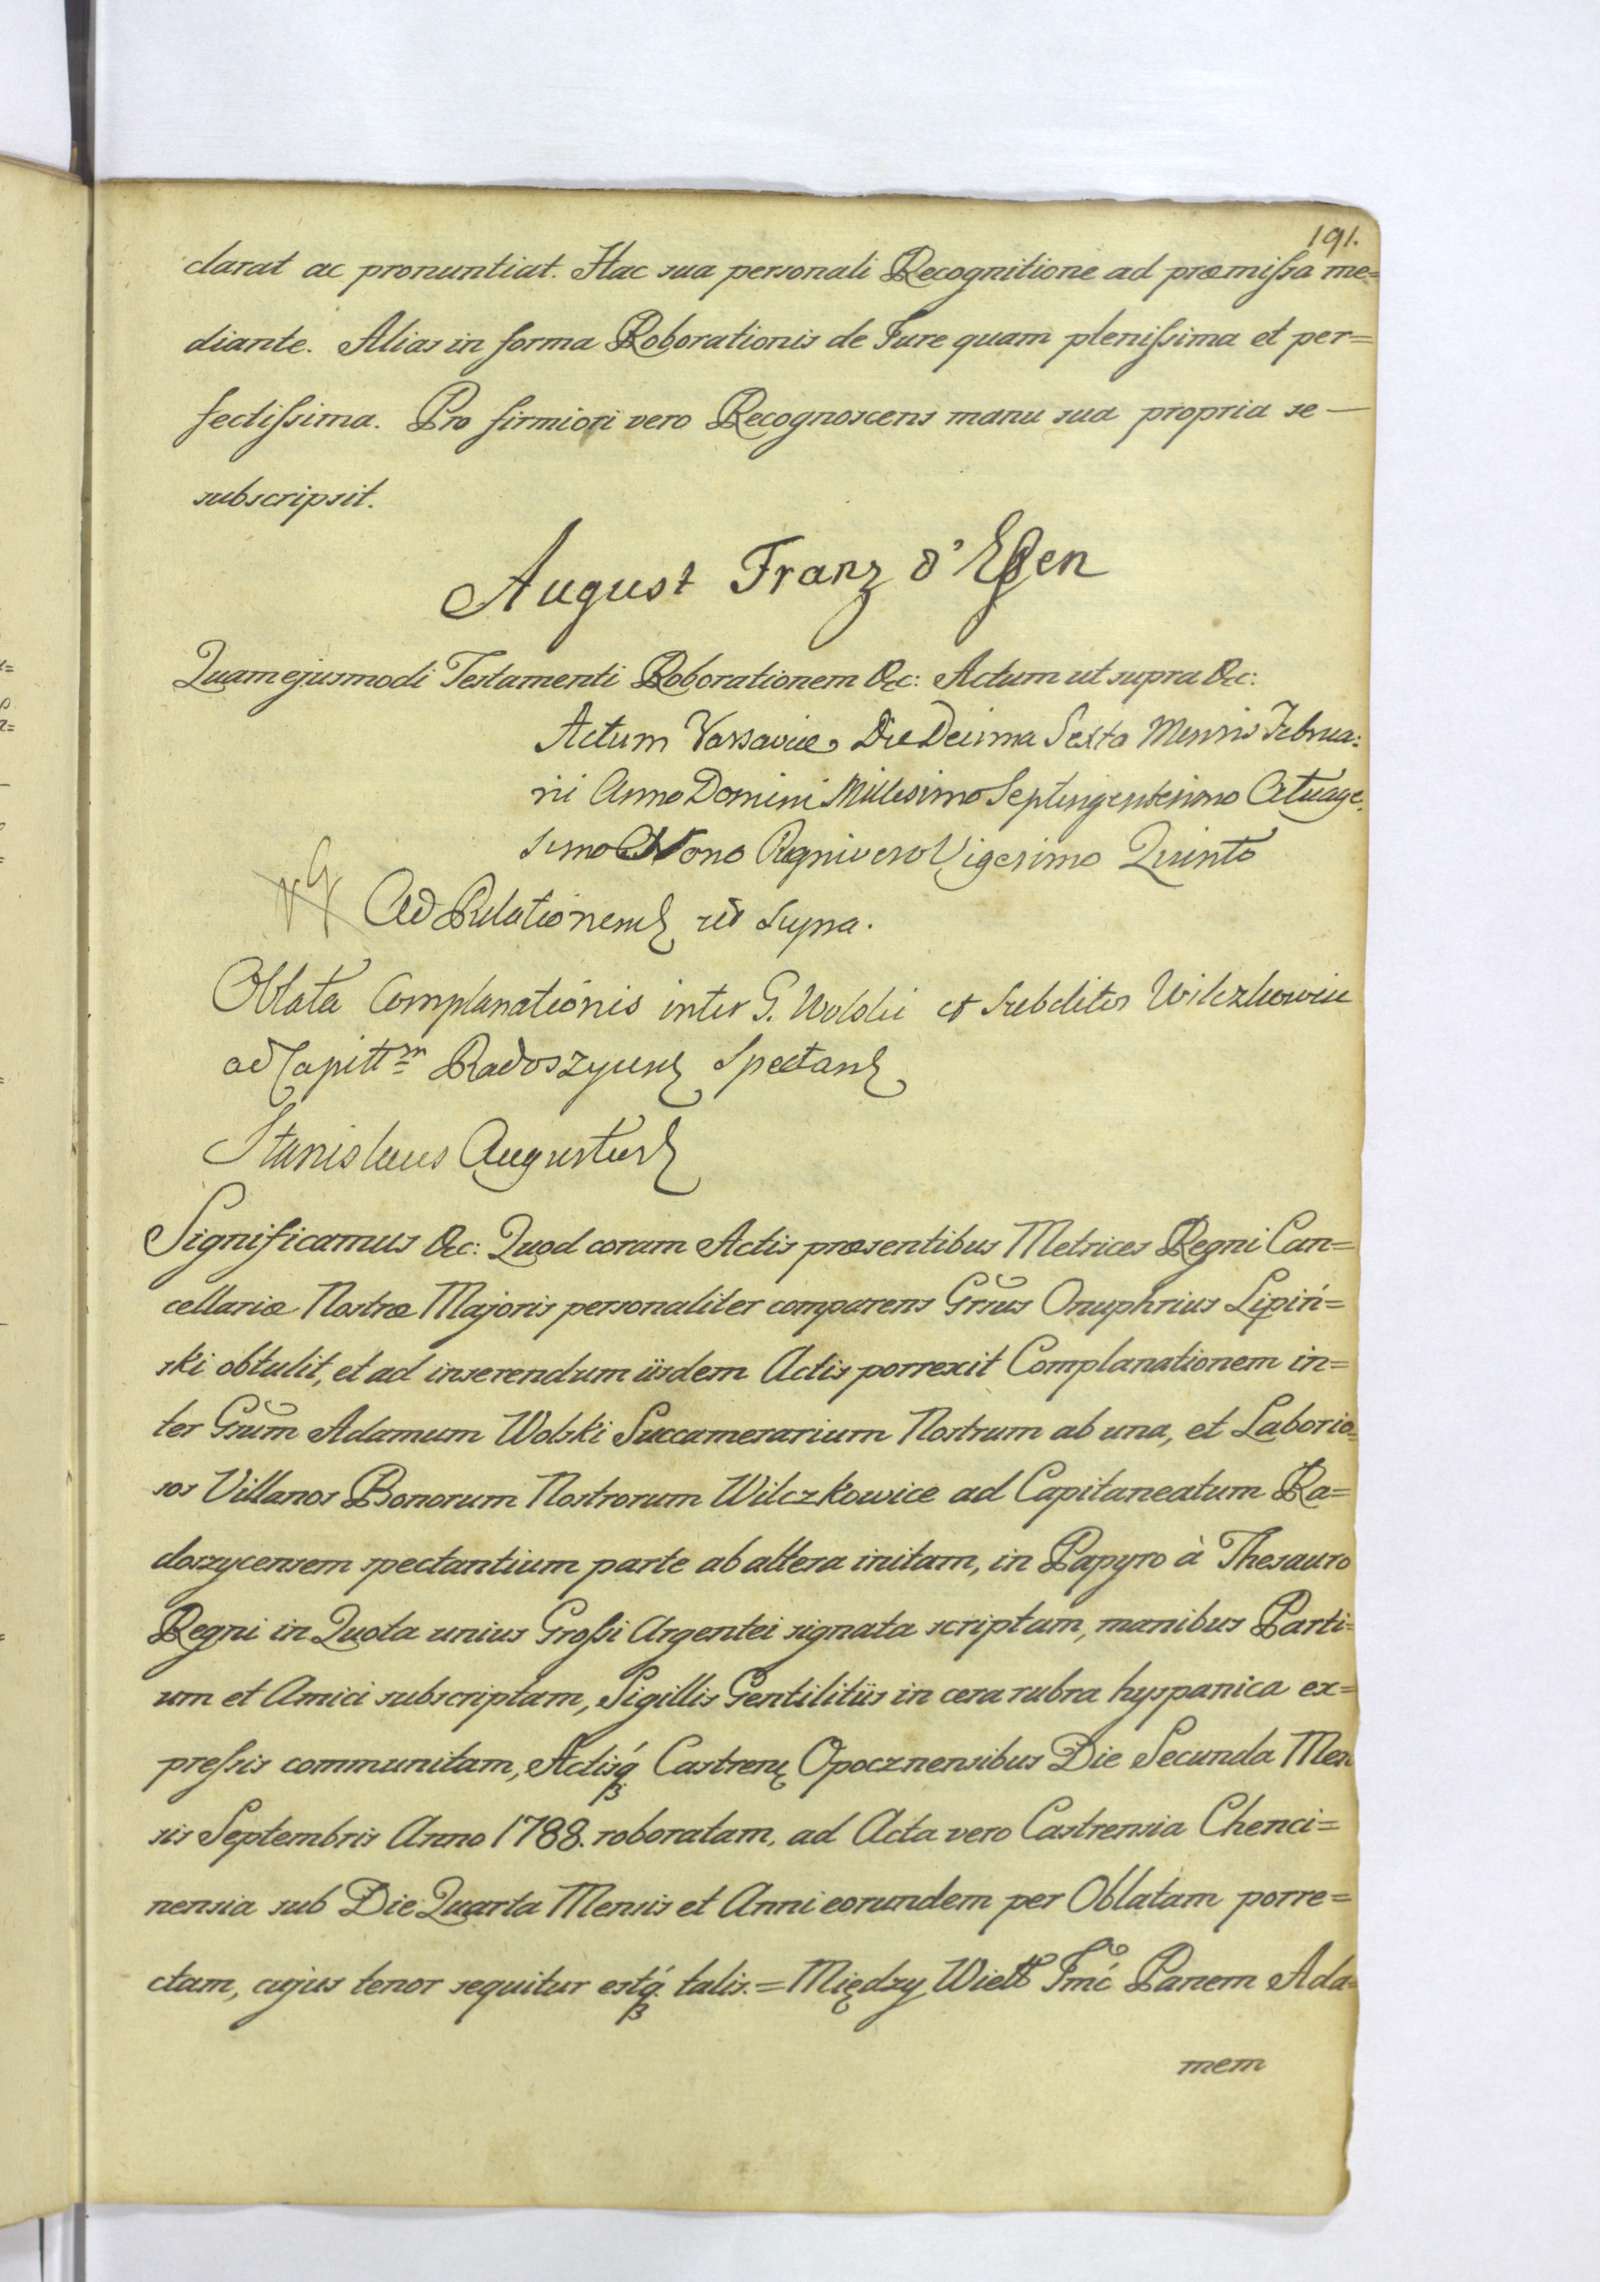 191.
clarat ac pronuntiat. Hac sua personali Recognitione ad præmiſsa me=
diante. Alias in forma Roborationis de Jure quam pleniſsima et per=
fectiſsima. Pro firmiori vero Recognoscens manu sua propria se —
subscripsit.
August Franz d'Eſsen
Quam ejusmodi Testamenti Roborationem &c: Actum ut supra &c:
Actum Varsaviæ, Die Decima Sexta Mensis Februa:
rii Anno Domini Millesimo Septingentesimo Octuage.
simo Nono Regni vero Vigesimo Quinto
Ad Relationem ut supra.
Oblata Complanationis inter G. Wolski et Subditos Wilczkowice
ad Capittm Radoszycen Spectan
Stanislaus Augustus
Significamus &c: Quod coram Actis præsentibus Metrices Regni Can=
cellariæ Nostræ Majoris personaliter comparens Grsus Onuphrius Lipiń=
ski obtulit, et ad inserendum iisdem Actis porrexit Complanationem in=
ter Grsum Adamum Wolski Succamerarium Nostrum ab una, et Laborio=
sos Villanos Bonorum Nostrorum Wilczkowice ad Capitaneatum Ra=
doszycensem spectantium parte ab altera initam, in Papyro à Thesauro
Regni in Quota unius Groſsi Argentei signata scriptam, manibus Parti=
um et Amici subscriptam, Sigillis Gentilitiis in cera rubra hyspanica ex=
preſsis communitam, Actisq́ Castren Opocznensibus Die Secunda Men
sis Septembris Anno 1788. roboratam, ad Acta vero Castrensia Chenci=
nensia sub Die Quarta Mensis et Anni eorundem per Oblatam porre=
ctam, cujus tenor sequitur estq́ talis. = Między Wielb Jmć Panem Ada=
mem